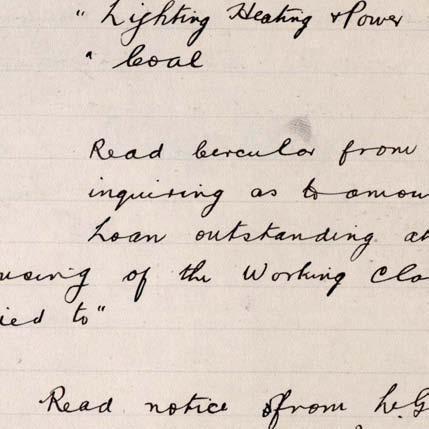 " Lighting Heating & Power
" Coal
Read Cercular from
inquiring as to amou
Loan outstanding at
using of the Working Cla
ied to"
Read notice from L.G